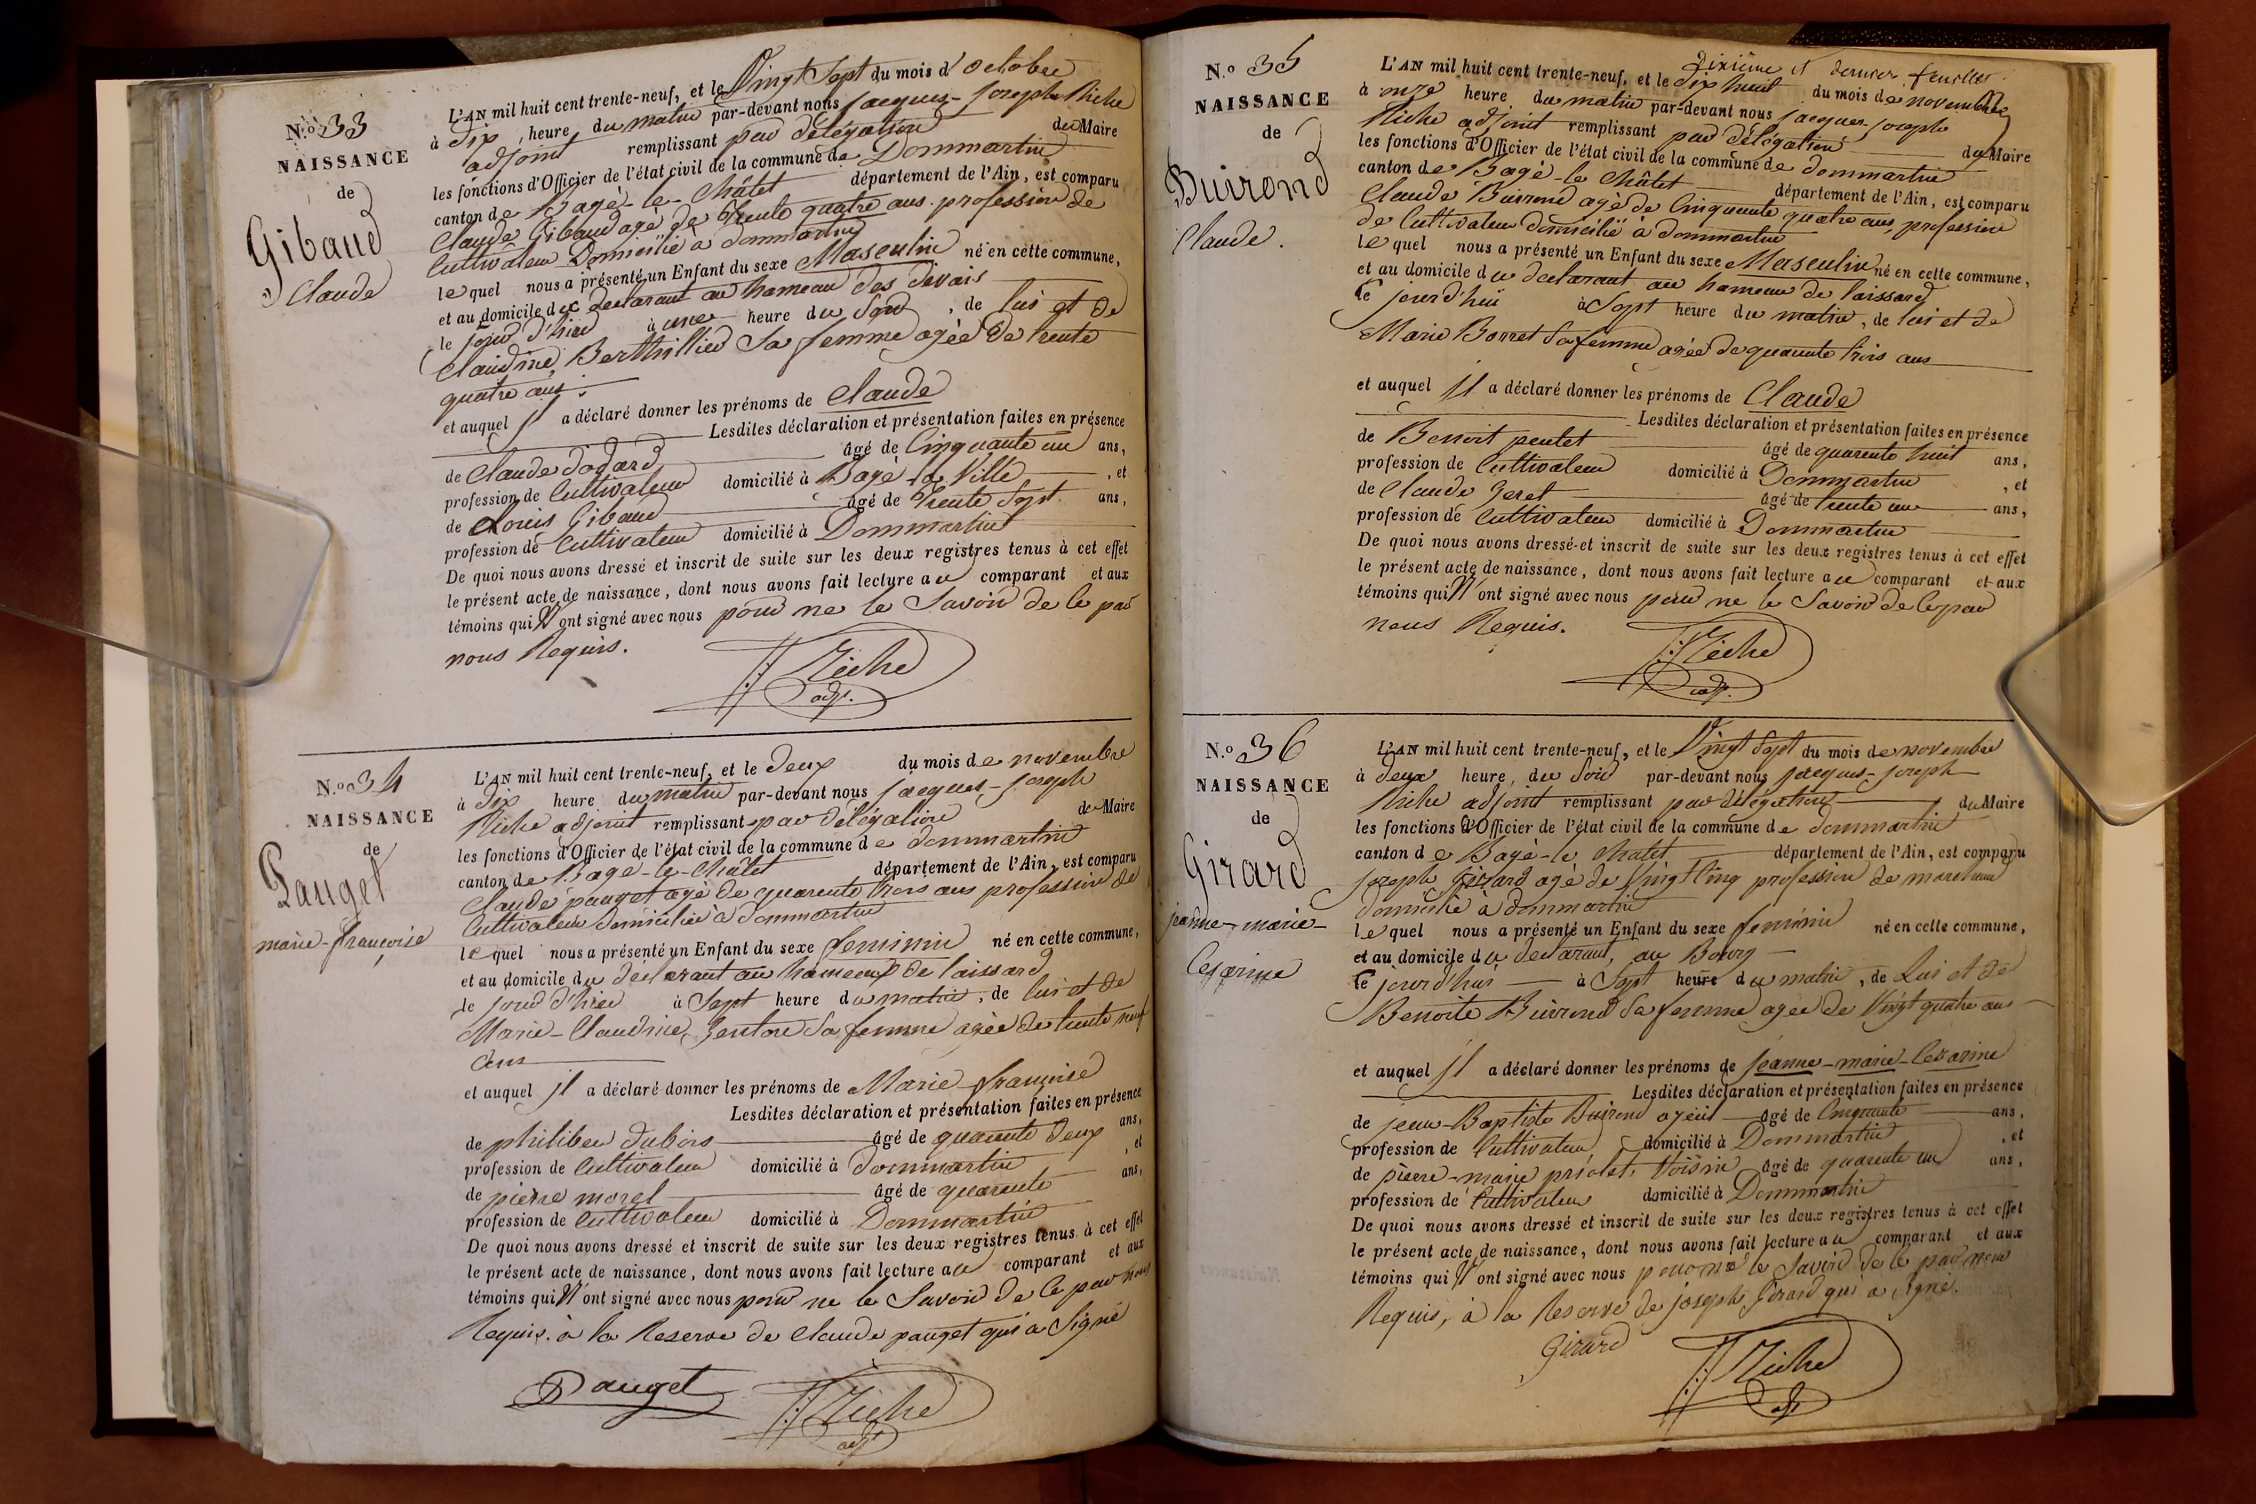 N.º 33
NAISSANCE
de
Gibaud
Claude
L'AN mil huit cent trente-neuf, et le Vingt Sept du mois d'octobre
à dix heure du matin par-devant nous jacques-joseph Riche
adjoint remplissant par délégation du Maire
les fonctions d'Officier de l'état civil de la commune de Dommartin
canton de Bagé-le-Châtel département de l'Ain, est comparu
Claude Gibaud agé de trente quatre ans profession de
Cultivateur Domicilié à dommartin
lequel nous a présenté un Enfant du sexe Masculin né en cette commune,
et au domicile du declarant au hameau des devais
le jour d'hier à une heure du Soir, de lui et de
Claudine Berthillier Sa femme agée de trente
quatre ans
et auquel jl a déclaré donner les prénoms de Claude
Lesdites déclaration et présentation faites en présence
de Claude dodard âgé de Cinquante un ans,
profession de Cultivateur domicilié à Bagé la Ville, et
de Louis Gibaud âgé de trente Sept ans,
profession de Cultivateur domicilié à Dommartin
De quoi nous avons dressé et inscrit de suite sur les deux registres tenus à cet effet
le présent acte de naissance, dont nous avons fait lecture au comparant et aux
témoins qui N'ont signé avec nous pour ne le Savoir de ce par
nous Requis.
JJ: Riche
adj.
N.º 34
NAISSANCE
de
Pauget
marie-françoise
L'AN mil huit cent trente-neuf, et le deux du mois de novembre
à dix heure du matin par-devant nous jacques-joseph
Riche adjoint remplissant par délégation du Maire
les fonctions d'Officier de l'état civil de la commune de dommartin
canton de Bagé-le-Châtel département de l'Ain, est comparu
Claude pauget agé de quarente trois ans profession de
Cultivateur domicilié à dommartin
lequel nous a présenté un Enfant du sexe feminin né en cette commune,
et au domicile du declarant au hameaux de laissard
le jour d'hier à Sept heure du matin, de lui et de
Marie-Claudine Sa femme agée de trente neuf
ans
et auquel jl a déclaré donner les prénoms de Marie françoise
Lesdites déclaration et présentation faites en présence
de philiber dubois âgé de quarente deux ans,
profession de Cultivateur domicilié à dommartin, et
de pierre morel âgé de quarente ans,
profession de Cultivateur domicilié à Dommartin
De quoi nous avons dressé et inscrit de suite sur les deux registres tenus à cet effet
le présent acte de naissance, dont nous avons fait lecture au comparant et aux
témoins qui N'ont signé avec nous pour ne le Savoir de ce par nous
Requis. à la Reserve de Claude pauget qui a Signé
Pauget JJ: Riche
adj.
dixième et dernier feuillet.
N.º 35
NAISSANCE
de
Buirond
Claude.
L'AN mil huit cent trente-neuf, et le dix huit du mois de novembre
à onze heure du matin par-devant nous jacques-joseph
Riche adjoint remplissant par délégation du Maire
les fonctions d'Officier de l'état civil de la commune de dommartin
canton de Bagé-le-Châtel département de l'Ain, est comparu
Claude Buirond agé de Cinquante quatre ans, profession
de Cultivateur domicilié à dommartin
lequel nous a présenté un Enfant du sexe Masculin né en cette commune,
et au domicile du declarant au hameau de laissard
le jourd'hui à Sept heure du matin, de lui et de
Marie Borret Sa femme agée de quarente trois ans
et auquel jl a déclaré donner les prénoms de Claude
Lesdites déclaration et présentation faites en présence
de Benoit peulet âgé de quarente huit ans,
profession de Cultivateur domicilié à Dommartin, et
de Claude âgé de trente un ans,
profession de Cultivateur domicilié à Dommartin
De quoi nous avons dressé et inscrit de suite sur les deux registres tenus à cet effet
le présent acte de naissance, dont nous avons fait lecture au comparant et aux
témoins qui N'ont signé avec nous pour ne le Savoir de ce par
nous Requis.
JJ: Riche
adj.
N.º 36
NAISSANCE
de
Girard
jeanne-marie-
Cesarine
L'AN mil huit cent trente-neuf, et le Vingt Sept du mois de novembre
à deux heure, du Soir par-devant nous jacques-joseph
Riche adjoint remplissant par délégation du Maire
les fonctions d'Officier de l'état civil de la commune de dommartin
canton de Bagé-le-Chatel département de l'Ain, est comparu
joseph Girard agé de Vingt Cinq profession de marchand
domicilié à dommartin
lequel nous a présenté un Enfant du sexe feminin né en cette commune,
et au domicile du declarant, au Bourg
le jourd'hui à Sept heure du matin, de Lui et de
Benoite Buirond Sa femme agée de Vingt quatre ans
et auquel jl a déclaré donner les prénoms de jeanne-marie-Cesarine
Lesdites déclaration et présentation faites en présence
de jean-Baptiste Buirond ayeul âgé de Cinquante ans,
profession de Cultivateur domicilié à Dommartin, et
de pierre-marie priolet, Voisin âgé de quarente un ans,
profession de Cultivateur domicilié à Dommartin
De quoi nous avons dressé et inscrit de suite sur les deux registres tenus à cet effet
le présent acte de naissance, dont nous avons fait lecture au comparant et aux
témoins qui N'ont signé avec nous pour ne le Savoir de ce par nous
Requis, à la Reserve de joseph Girard qui a Signé.
Girard JJ: Riche
adj